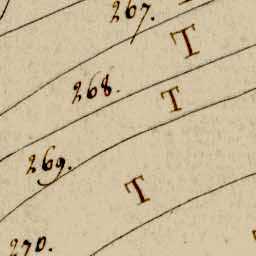 267.
T
268.
T
269.
T
270.